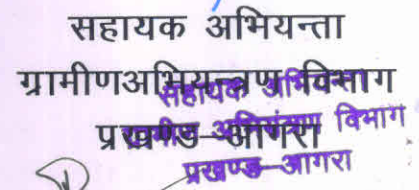 सहायक अभियन्ता
ग्रामीणअभियन्त्रण विभाग
प्रखण्ड-आगरा
सहायक अभियन्ता
ग्रामीण अभियंत्रण विभाग
प्रखण्ड-आगरा